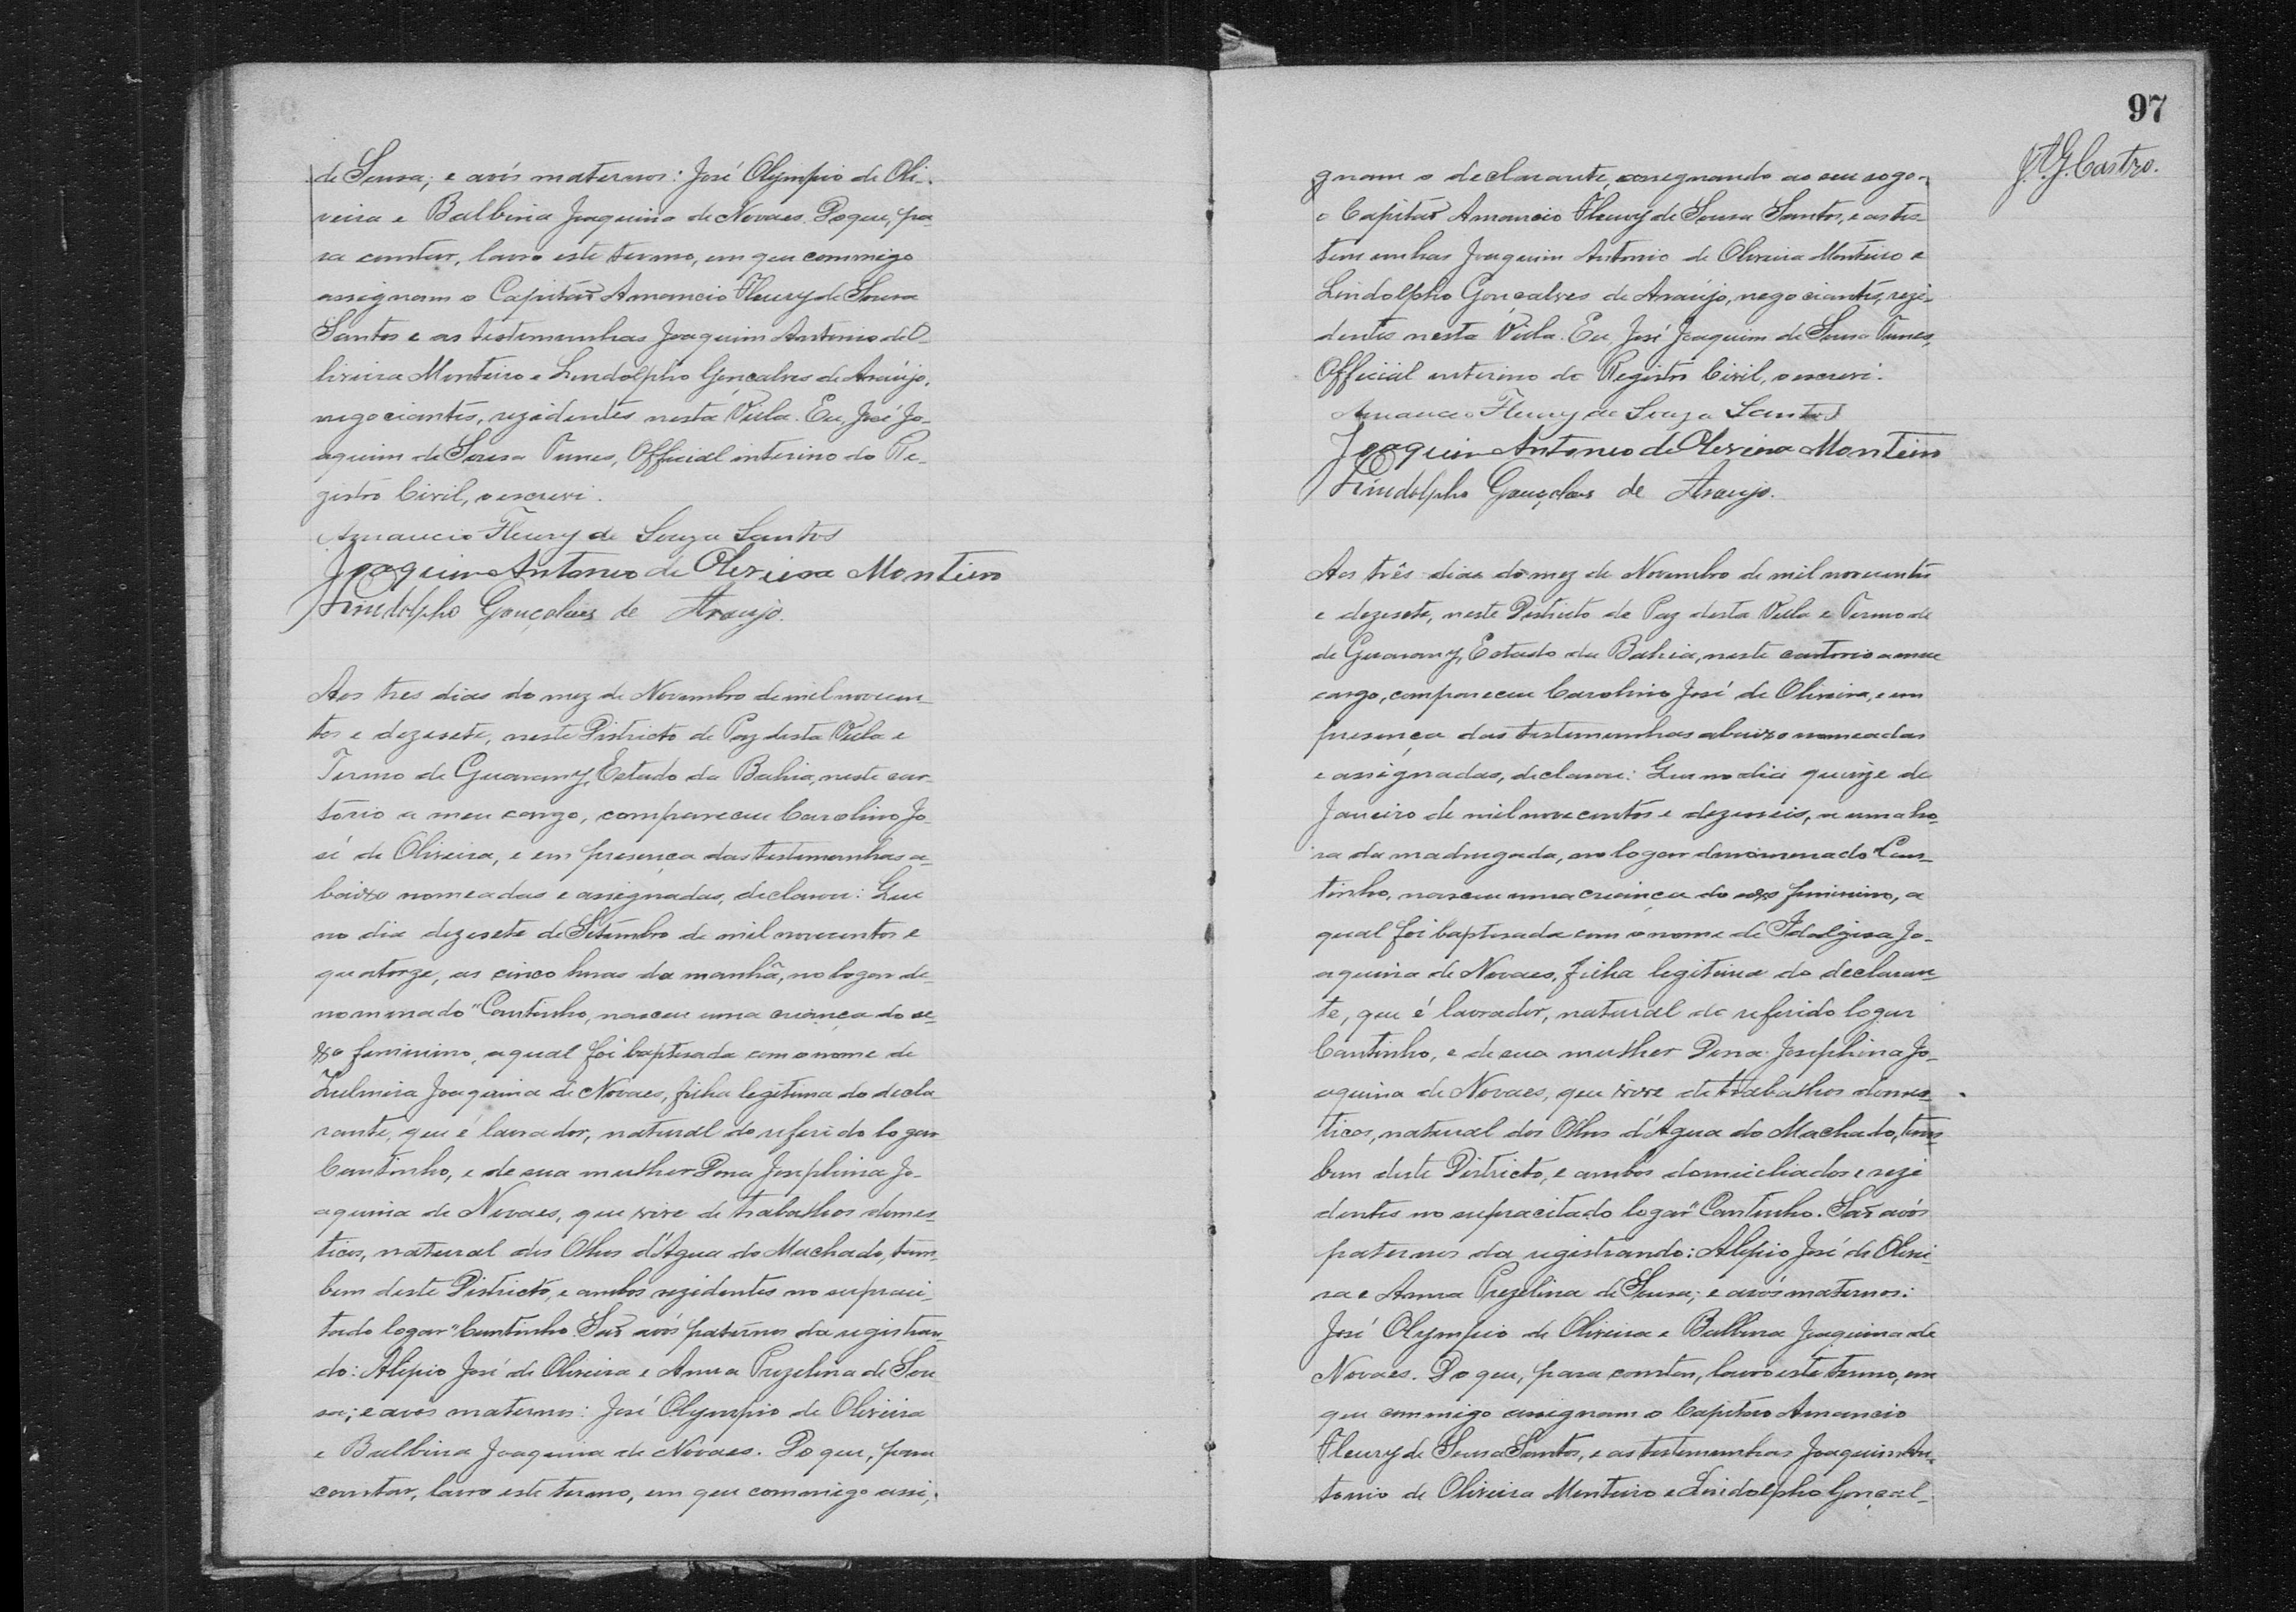 de Sousa; e avós maternos: José Olympio de Oli-
veira e Balbina Joaquina de Novaes. Do que, pa-
ra constar, lavro este termo, em que commigo
assignam o Capitão Amancio Fleury de Sousa
Santos e as testemunhas Joaquim Antonio de O-
liveira Monteiro e Lindolpho Gonçalves de Araújo,
negociantes, rezidentes nesta Villa. Eu, José Jo-
aquim de Sousa Tunes, Official interino do Re-
gistro Civil, o escrevi.
Amancio Fleury de Souza Santos
Joaquim Antonio de Oliveira Monteiro
Lindolpho Gonçalves de Araujo.
Aos tres dias do mez de Novembro de mil novecen-
tos e dezesete, neste Districto de Paz desta Villa e
Termo de Guarany, Estado da Bahia, neste car-
torio a meu cargo, compareceu Carolino Jo-
sé de Oliveira, e em presença das testemunhas a-
baixo nomeadas e assignadas, declarou: Que
no dia dezesete de Setembro de mil novecentos e
quatorze, as cinco horas da manhã, no logar de-
nominado "Cantinho, nasceu uma criança do se-
xo feminino, a qual foi baptisada com o nome de
Zulmira Joaquina de Novaes, filha legitima do decla-
rante, que é lavrador, natural do referido logar
Cantinho, e de sua mulher Dona Josephina Jo-
aquina de Novaes, que vive de trabalhos domes-
ticos, natural dos Olhos d'Agua do Machado, tam-
bem deste Districto, e ambos rezidentes no supraci-
tado logar "Cantinho. São avós paternos da registran-
do: Alipio José de Oliveira e Anna Prezelina de Sou-
sa; e avós maternos: José Olympio de Oliveira
e Balbina Joaquina de Novaes. Do que, para
constar, lavro este termo, em que commigo assi-
97
J.A.G. Castro.
gnam o declarante, assegnando ao seu rogo
o Capitão Amancio Fleury de Sousa Santos, e as tes-
temunhas Joaquim Antonio de Oliveira Monteiro e
Lindolpho Gonçalves de Araújo, negociantes, rezi-
dentes nesta Villa. Eu, José Joaquim de Sousa Tunes,
Official interino do Registro Civil, o escrevi.
Amancio Fleury de Souza Santos
Joaquim Antonio de Oliveira Monteiro
Lindolpho Gonçalves de Araujo.
Aos três dias do mez de Novembro de mil novecentos
e dezesete, neste Districto de Paz desta Villa e Termo de
de Guarany, Estado da Bahia, neste cartorio a meu
cargo, compareceu Carolino José de Oliveira, e em
presença das testemunhas abaixo nomeadas
e assignadas, declarou: Que no dia quinze de
Janeiro de mil novecentos e dezeseis, a uma ho-
ra da madrugada, no logar denominado "Can-
tinho, nasceu uma criança do sexo feminino, a
qual foi baptisada com o nome de Idalgisa Jo-
aquina de Novaes, filha legitima do declaran-
te, que é lavrador, natural do referido logar
Cantinho, e de sua mulher Dona Josephina Jo-
aquina de Novaes, que vive de trabalhos domes-
ticos, natural dos Olhos d'Agua do Machado, tam-
bem deste Districto, e ambos domiciliados e rezi
dentes no supracitado logar "Cantinho. São avós
paternos da registrando: Alipio José de Olivei-
ra e Anna Prezelina de Sousa; e avós maternos:
José Olympio de Oliveira e Balbina Joaquina de
Novaes. Do que, para constar, lavro este termo, em
que commigo assignam o Capitão Amancio
Fleury de Sousa Santos, e as testemunhas Joaquim An-
tonio de Oliveira Monteiro e Lindolpho Gonçal-